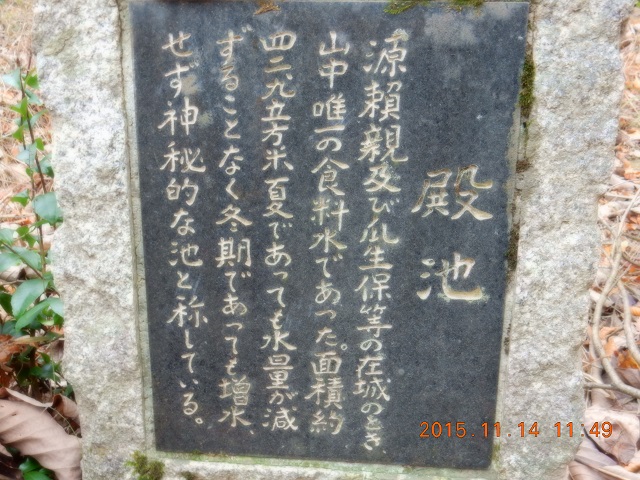 殿池
源頼親及び瓜生保等の在城のとき
山中唯一の食料水であった。面積約
四二九立方米夏であっても水量が減
ずることなく冬期であっても増水
せず神秘的な池と称している。
2015.11.14 11:49